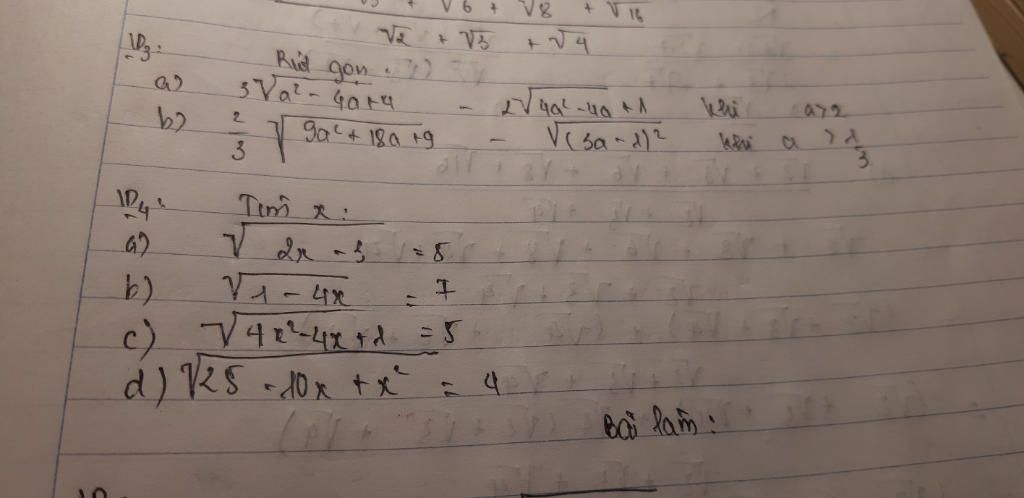 √3 + √6 + √8 + √16
√2 + √3 + √4
B3:
Rút gọn:
a) 3√(a² - 4a + 4) - 2√(4a² - 4a + 1) khi a > 2
b) 2/3 √(9a² + 18a + 9) - √((3a - 1)²) khi a > 1/3
B4: Tìm x:
a) √(2x - 3) = 5
b) √(1 - 4x) = 7
c) √(4x² - 4x + 1) = 5
d) √(25 - 10x + x²) = 4
Bài làm: